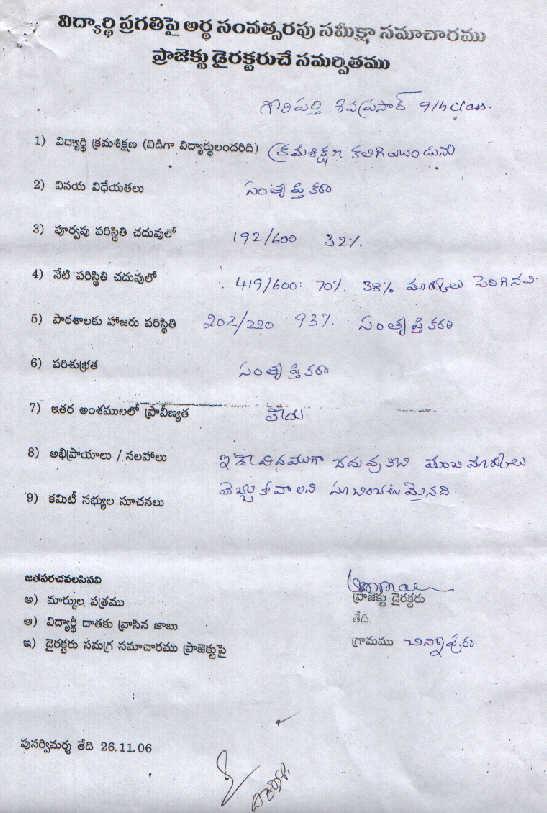 విద్యార్థి ప్రగతిపై అర్థ సంవత్సరపు సమీక్షా సమాచారము
ప్రాజెక్టు డైరక్టరుచే సమర్పితము
శివప్రసాద్ 9th class.
1) విద్యార్థి క్రమశిక్షణ (విడిగా విద్యార్థులందరిది) క్రమశిక్షణ కలిగియుండును
2) వినయ విధేయతలు సంతృప్తికరం
3) పూర్వపు పరిస్థితి చదువులో 192/600 32%
4) నేటి పరిస్థితి చదువులో 419/600. 70% 38% మార్కులు పెరిగినవి
5) పాఠశాలకు హాజరు పరిస్థితి 202/220 93% సంతృప్తికరం
6) పరిశుభ్రత సంతృప్తికరం
7) ఇతర అంశములలో ప్రావీణ్యత
8) అభిప్రాయాలు / సలహాలు ఇదే విధముగా చదువుకొని మంచి మార్కులు
9) కమిటీ సభ్యుల సూచనలు తెచ్చుకోవాలని సూచించటమైనది
జతపరచవలసినవి
అ) మార్కుల పత్రము ప్రాజెక్టు డైరక్టరు
ఆ) విద్యార్థి దాతకు వ్రాసిన జాబు తేది
ఇ) డైరక్టరు సమగ్ర సమాచారము ప్రాజెక్టుపై గ్రామము చిన్నాపురం
పునర్విమర్శ తేది 26.11.06